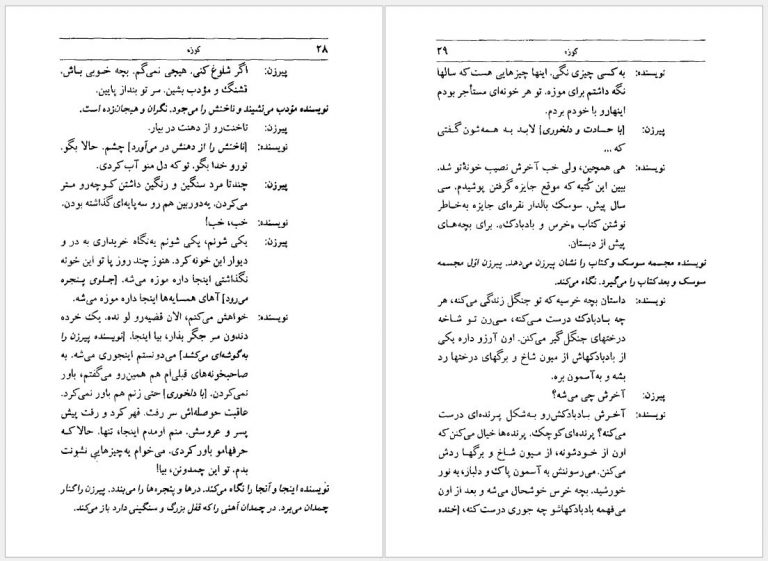 ۲۸ کوزه
پیرزن: اگر شلوغ کنی. هیچی نمی‌گم. بچه خوبی باش،
قشنگ و مؤدب بشین. سر تو بنداز پایین.
نویسنده مؤدب می‌نشیند و ناخنش را می‌جود. نگران و هیجان‌زده است.
پیرزن: ناخنت‌رو از دهنت در بیار.
نویسنده: [ناخنش را از دهنش در می‌آورد] چشم. حالا بگو.
تورو خدا بگو. تو که دل منو آب کردی.
پیرزن: چندتا مرد سنگین و رنگین داشتن کوچه‌رو متر
می‌کردن. یه‌دوربین هم رو سه‌پایه‌ای گذاشته بودن.
نویسنده: خب، خب!
پیرزن: یکی شونم، یکی شونم یه‌نگاه خریداری به در و
دیوار این خونه کرد. هنوز چند روز پا تو این خونه
نگذاشتی اینجا داره موزه می‌شه. [جلوی پنجره
می‌رود] آهای همسایه‌ها اینجا داره موزه می‌شه.
نویسنده: خواهش می‌کنم، الان قضیه‌رو لو نده. یک خرده
دندون سر جگر بذار، بیا اینجا. [نویسنده پیرزن را
به‌گوشه‌ای می‌کشد] می‌دونستم اینجوری می‌شه. به
صاحبخونه‌های قبلی‌ام هم همین‌رو می‌گفتم، باور
نمی‌کردن. [با دلخوری] حتی زنم هم باور نمی‌کرد.
عاقبت حوصله‌اش سر رفت. قهر کرد و رفت پیش
پسر و عروسش. منم اومدم اینجا، تنها. حالا که
حرفهامو باور کردی. می‌خوام یه‌چیزهایی نشونت
بدم. تو این چمدونن، بیا!
نویسنده اینجا و آنجا را نگاه می‌کند. درها و پنجره‌ها را می‌بندد. پیرزن را کنار
چمدان می‌برد. در چمدان آهنی را که قفل بزرگ و سنگینی دارد باز می‌کند.
کوزه ۲۹
نویسنده: به کسی چیزی نگی. اینها چیزهایی هست که سالها
نگه داشتم برای موزه. تو هر خونه‌ای مستأجر بودم
اینهارو با خودم بردم.
پیرزن: [با حسادت و دلخوری] لابد به همه‌شون گفتی
که ...
نویسنده: هی همچین، ولی خب آخرش نصیب خونهٔ تو شد.
ببین این کُتیه که موقع جایزه گرفتن پوشیدم. سی
سال پیش. سوسک بالدار نقره‌ای جایزه به‌خاطر
نوشتن کتاب «خرس و بادبادک». برای بچه‌های
پیش از دبستان.
نویسنده مجسمه سوسک و کتاب را نشان پیرزن می‌دهد. پیرزن اوّل مجسمه
سوسک و بعد کتاب را می‌گیرد. نگاه می‌کند.
نویسنده: داستان بچه خرسیه که تو جنگل زندگی می‌کنه، هر
چه بادبادک درست می‌کنه، می‌رن تو شاخه
درختهای جنگل گیر می‌کنن. اون آرزو داره یکی
از بادبادکهاش از میون شاخ و برگهای درختها رد
بشه و به‌آسمون بره.
پیرزن: آخرش چی می‌شه؟
نویسنده: آخرش بادبادکش‌رو به‌شکل پرنده‌ای درست
می‌کنه؟ پرنده‌ای کوچک. پرنده‌ها خیال می‌کنن که
اون از خودشونه، از میون شاخ و برگها ردش
می‌کنن. می‌رسوننش به آسمون پاک و دلباز، به نور
خورشید. بچه خرس خوشحال می‌شه و بعد از اون
می‌فهمه بادبادکهاشو چه جوری درست کنه، [خنده